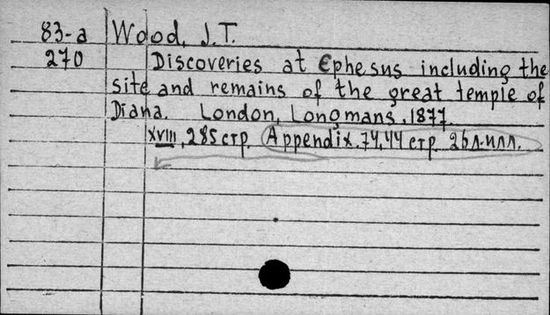 83-a Wood, J.T.
270 Discoveries at Ephesus including the
site and remains of the great temple of
Diana. London, Longmans, 1877.
XVIII, 285 стр. Appendix. 74,44 стр. 26 л. илл.